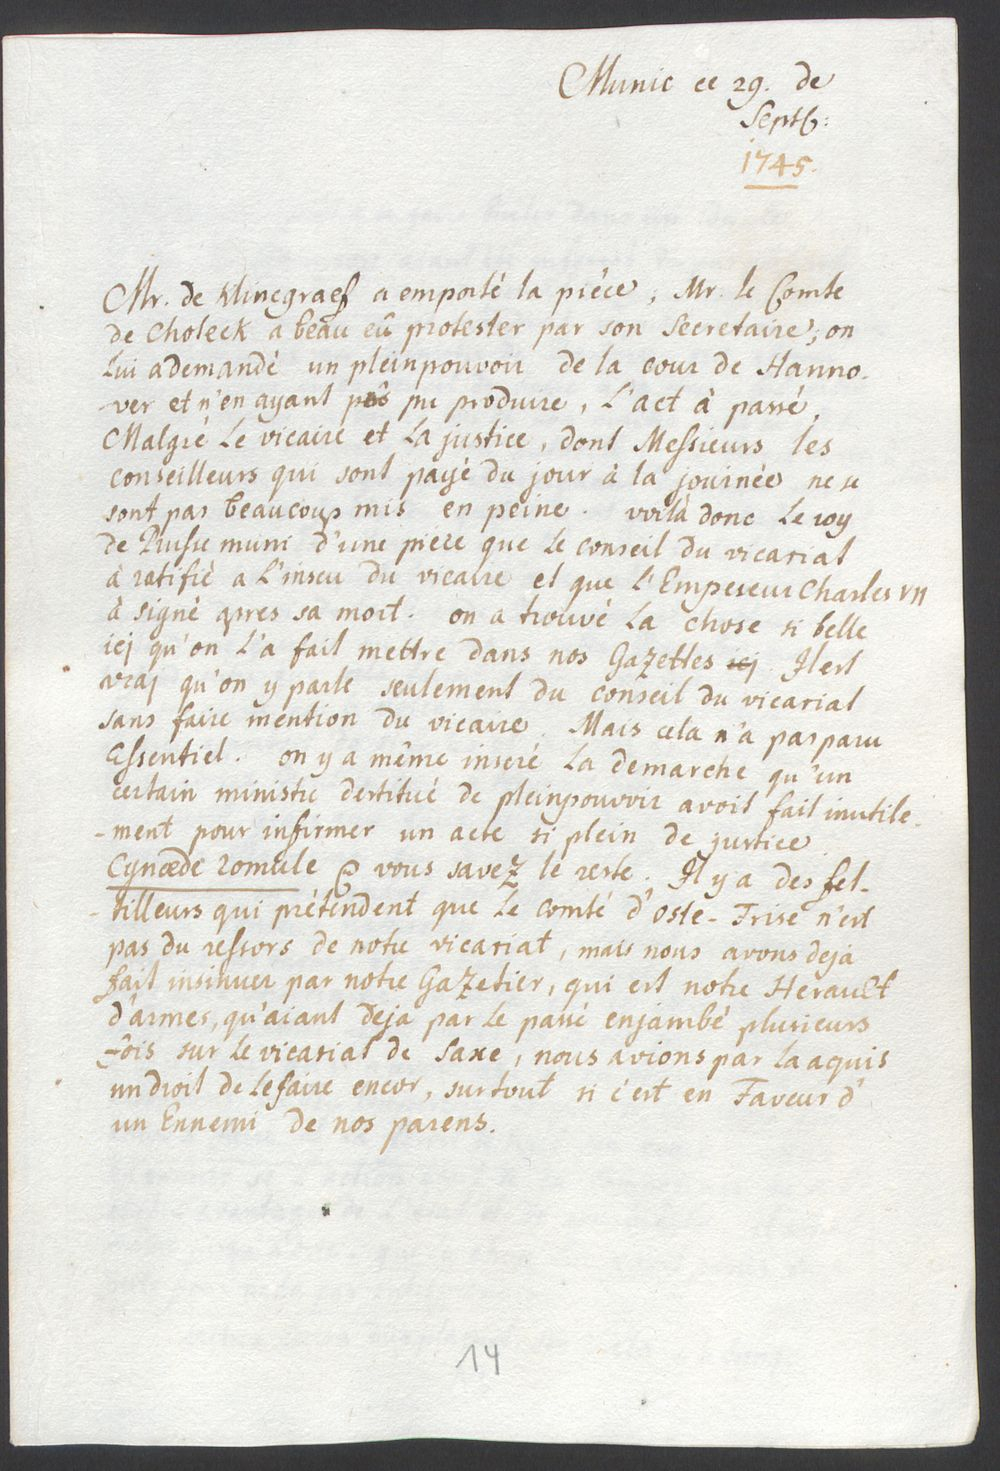 Munic ce 29. de
Septb:
1745.
Mr. de Klincgraef a emporté la piéce, Mr. le Comte
de Choteck a beau eû protester par son Secretaire, on
lui a demandé un pleinpouvoir de la cour de Hanno-
-ver et n'en ayant pas pu produire, L'act à passé,
Malgré Le vicaire et La justice, dont Messieurs les
conseilleurs qui sont payé du jour à la journée ne se
sont pas beaucoup mis en peine. voila donc Le roy
de Prusse muni d'une piéce que Le conseil du vicariat
à ratifié a L'insçu du vicaire et que L'Empereur Charles VII
à signé apres sa mort. on a trouvé La chose si belle
icj qu'on L'a fait mettre dans nos Gazettes icj. Il est
vraj qu'on y parle seulement du conseil du vicariat
sans faire mention du vicaire. Mais cela n'a pas paru
Essentiel. on y a même inseré La demarche qu'un
certain ministre destitué de pleinpouvoir avoit fait inutile-
-ment pour infirmer un acte si plein de justice
Cynœde romule vous savez le reste. Il y a des fel-
-tilleurs qui prétendent que Le comté d'Oste-Frise n'est
pas du ressors de notre vicariat, mais nous avons deja
fait insinuer par notre Gazetier, qui est notre Herault
d'armes, qu'aiant deja par Le passé enjambé plusieurs
fois sur Le vicariat de Saxe, nous avions par La aquis
un droit de Le faire encor, surtout si c'est en Faveur d'
un Ennemi de nos parens.
14